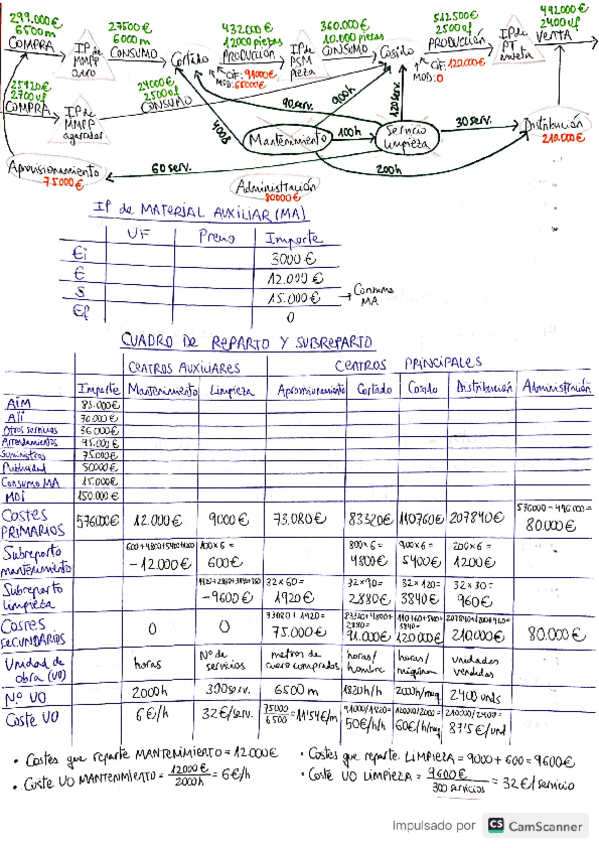 299.000€ 6500m COMPRA
IP de MMPP cuero
27500€ 6000m CONSUMO
Cortado
432.000€ 12000 piezas PRODUCCIÓN
CIF: 91000€
MOD: 65000€
IP de PSM Pieza
360.000€ 10.000 piezas CONSUMO
Cosido
512.500€ 2500uf PRODUCCIÓN
CIF: 120.000€
MOD: 0
IP de PT
492.000€ 2400uf VENTA
25920€ 2700uf COMPRA
IP de MMPP
24000€ 2500uf CONSUMO
90serv.
900h
120serv.
800h
Mantenimiento
100h
Servicio Limpieza
30 serv.
Distribución 210.000€
200h
60 serv.
Aprovisionamiento 75000€
Administración 80000€
IP de MATERIAL AUXILIAR (MA)
UF Precio Importe
Ei 3000€
E 12.000€
S 15.000€ → Consumo MA
Ef 0
CUADRO DE REPARTO Y SUBREPARTO
CENTROS AUXILIARES CENTROS PRINCIPALES
Importe Mantenimiento Limpieza Aprovisionamiento Cortado Cosido Distribución Administración
AIM 83.000€
AII 70.000€
Otros servicios 36000€
Arrendamientos 95.000€
Suministros 75.000€
Publicidad 50000€
Consumo MA 15.000€
MOI 150.000€
Costes PRIMARIOS 576000€ 12.000€ 9000€ 73.080€ 83320€ 110760€ 207840€ 576000-496.000= 80.000€
Subreparto mantenimiento 600+4800+5400+1200 -12.000€ 100x6= 600€ 800x6= 4800€ 900x6= 5400€ 200x6= 1200€
Subreparto limpieza -9600€ 32x60= 1920€ 32x90= 2880€ 32x120= 3840€ 32x30= 960€
Costes SECUNDARIOS 0 0 73080+1920= 75.000€ 91.000€ 120.000€ 210.000€ 80.000€
Unidad de obra (UO) horas Nº de servicios metros de cuero comprados horas/hombre horas/máquina unidades vendidas
Nº UO 2000h 300serv. 6500m 1820h/h 2000h/maq 2400 unds
Coste UO 6€/h 32€/serv. 75000/6500=11'54€/m 91000/1820= 50€/h/h 120000/2000= 60€/h/maq 210000/2400= 87'5€/und
• Costes que reparte MANTENIMIENTO = 12.000€
• Costes que reparte LIMPIEZA = 9000+600=9600€
• Coste UO MANTENIMIENTO = 12000€/2000h = 6€/h
• Coste UO LIMPIEZA = 9600€/300 servicios = 32€/servicio
Impulsado por CS CamScanner